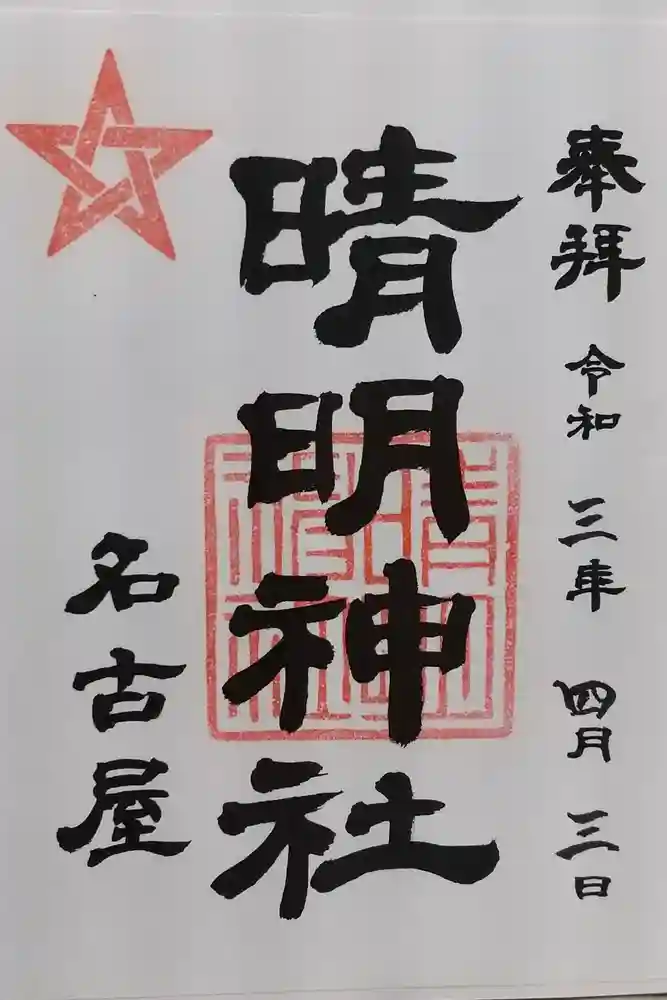 奉拝 令和三年四月三日
晴明神社
名古屋